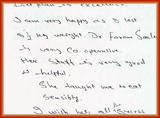 plan is excellent
I am very happy as I lost
of my weight. Dr Faran Saele
is very Co.operative.
Her Staff is very good
& helpful.
She taught me to eat
sensibly.
I wish her all the Success